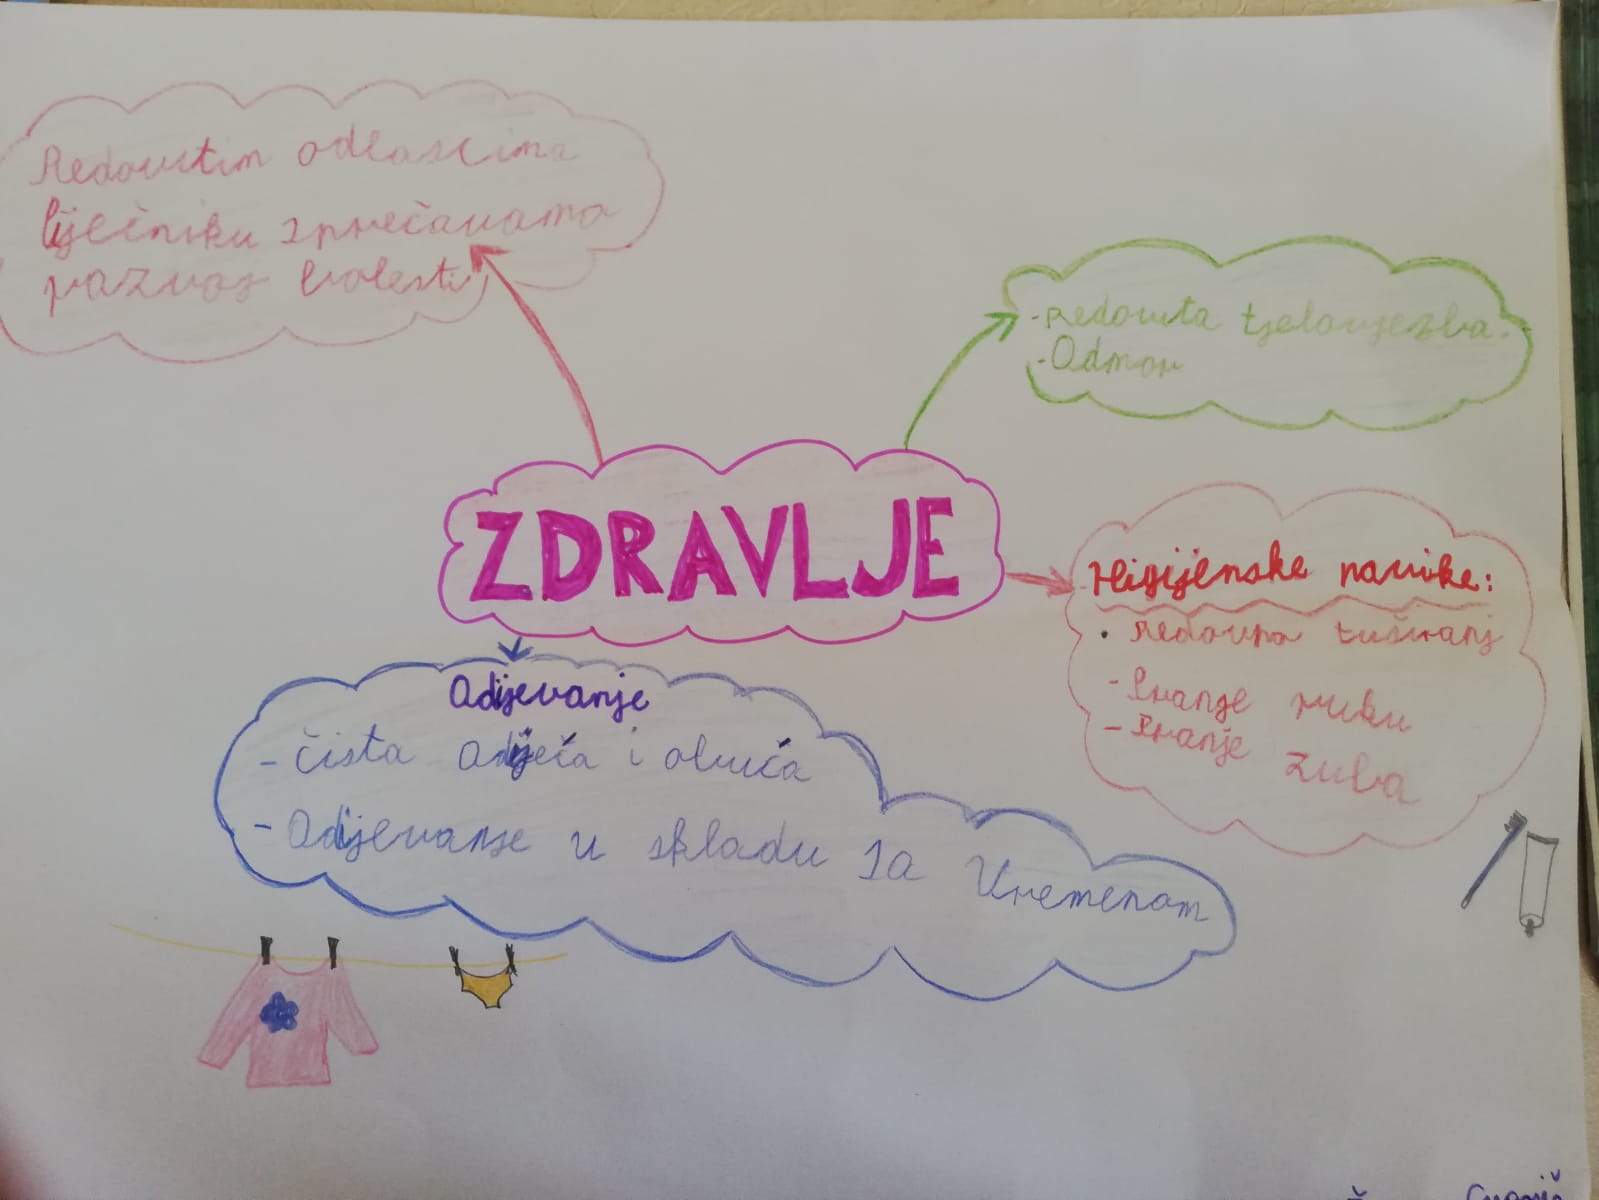 Redovitim odlascima
liječniku sprečavamo
razvoj bolesti
- redovita tjelovježba.
- Odmor
ZDRAVLJE
Higijenske navike:
• Redovno tuširanj
- Pranje ruku
- Pranje zuba
Odijevanje
- čista odijeća i obuća
- Odijevanje u skladu sa vremenom